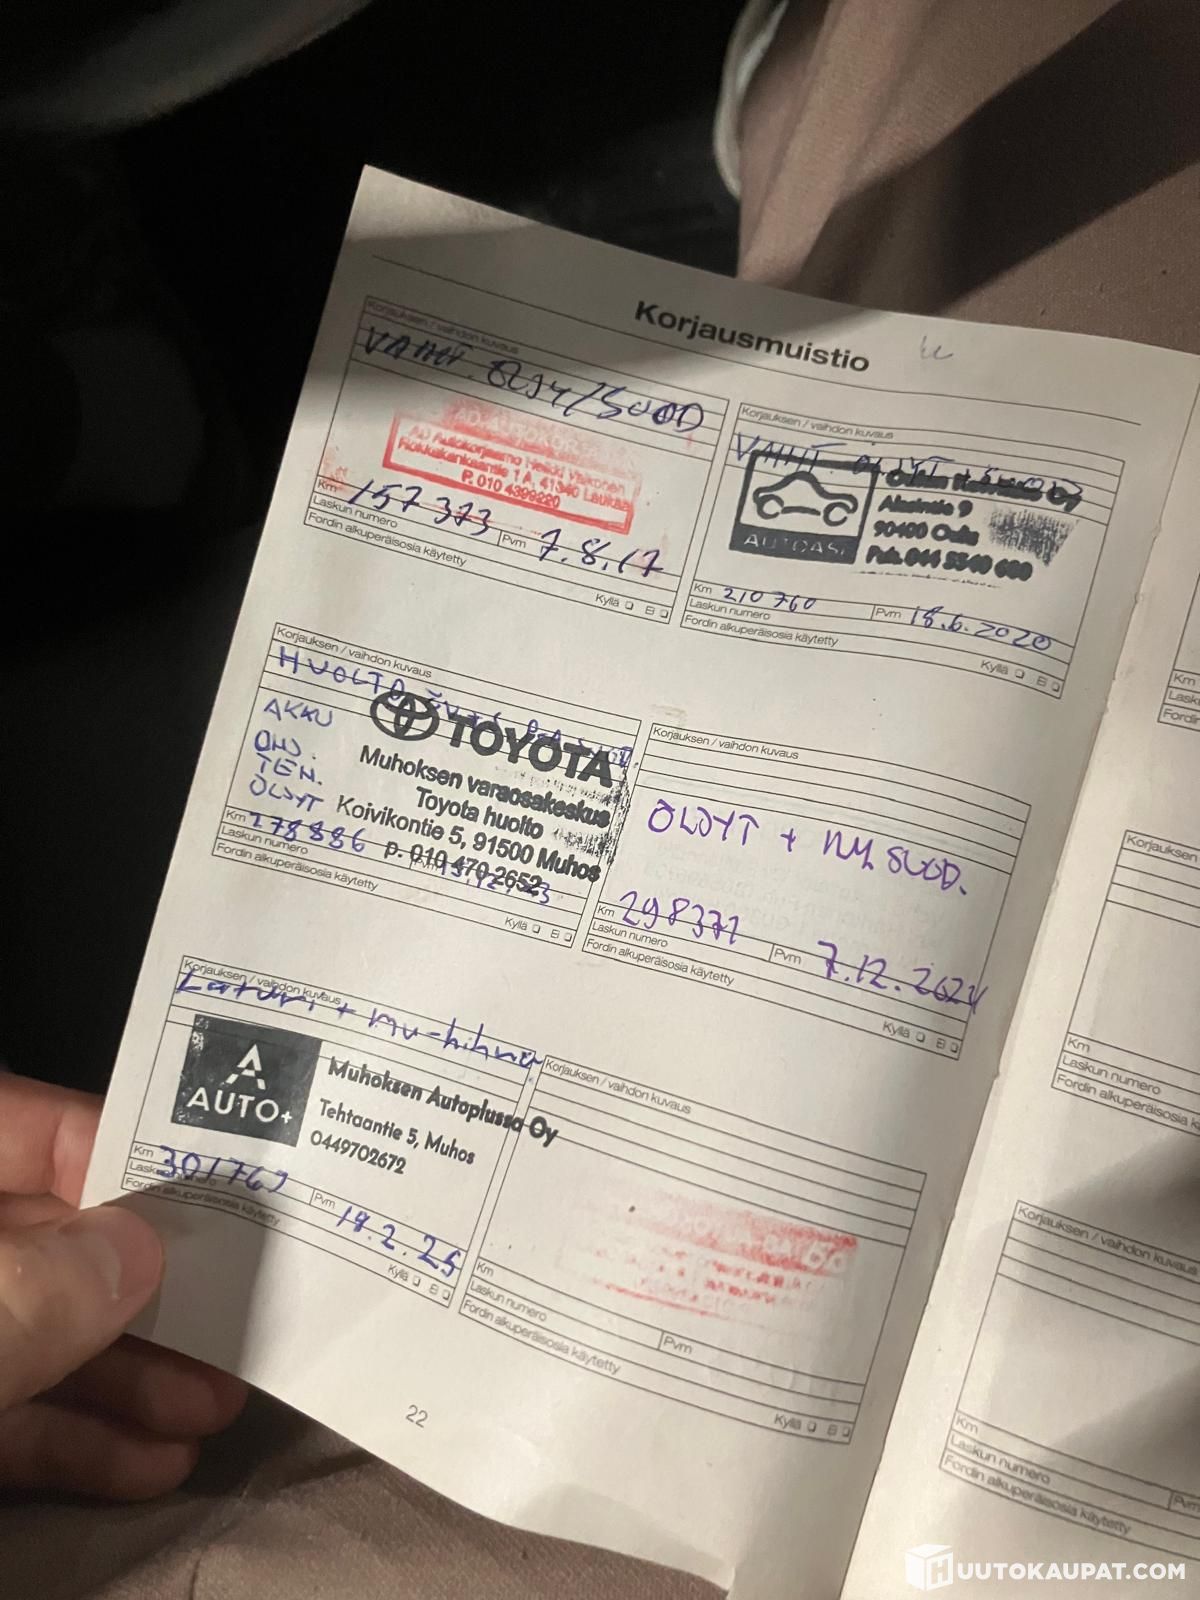 Korjausmuistio
Korjauksen / vaihdon kuvaus
VAIHT. ÖLJY/SUOD
AD Autokorjaamo Heikki Valkonen
1 A, 41340 Laukaa
P. 010 4399220
Km 157 373
Laskun numero
Pvm 7.8.17
Fordin alkuperäisosia käytetty
Kyllä Ei
Korjauksen / vaihdon kuvaus
VAIHT ÖLJYT +
AUTOASI
Oy
9
90400 Oulu
Puh. 044 5540 600
Km 210 760
Laskun numero
Pvm 18.6.2020
Fordin alkuperäisosia käytetty
Kyllä Ei
Korjauksen / vaihdon kuvaus
HUOLTO
AKKU
OHJ.
ÖLJYT
TOYOTA
Muhoksen varaosakeskus
Toyota huolto
Koivikontie 5, 91500 Muhos
p. 010 470 2652
Km 278886
Laskun numero
Pvm
Fordin alkuperäisosia käytetty
Kyllä Ei
Korjauksen / vaihdon kuvaus
ÖLJYT + SUOD.
Km 298371
Laskun numero
Pvm 7.12.2024
Fordin alkuperäisosia käytetty
Kyllä Ei
Korjauksen / vaihdon kuvaus
Laturi + mu-hihna
A
AUTO+
Muhoksen Autoplussa Oy
Tehtaantie 5, Muhos
0449702672
Km 301769
Laskun numero
Pvm 18.2.25
Fordin alkuperäisosia käytetty
Kyllä Ei
Korjauksen / vaihdon kuvaus
Km
Laskun numero
Pvm
Fordin alkuperäisosia käytetty
Kyllä Ei
22
Km
Laskun
Fordin
Korjauksen
Km
Laskun numero
Fordin alkuperäisosia
Korjauksen / vaihdon kuvaus
Km
Laskun numero
Pvm
Fordin alkuperäisosia käytetty
HUUTOKAUPAT.COM